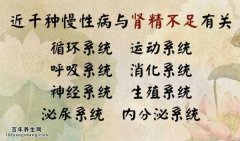 近千种慢性病与肾精不足有关
循环系统 运动系统
呼吸系统 消化系统
神经系统 生殖系统
泌尿系统 内分泌系统
百年养生网